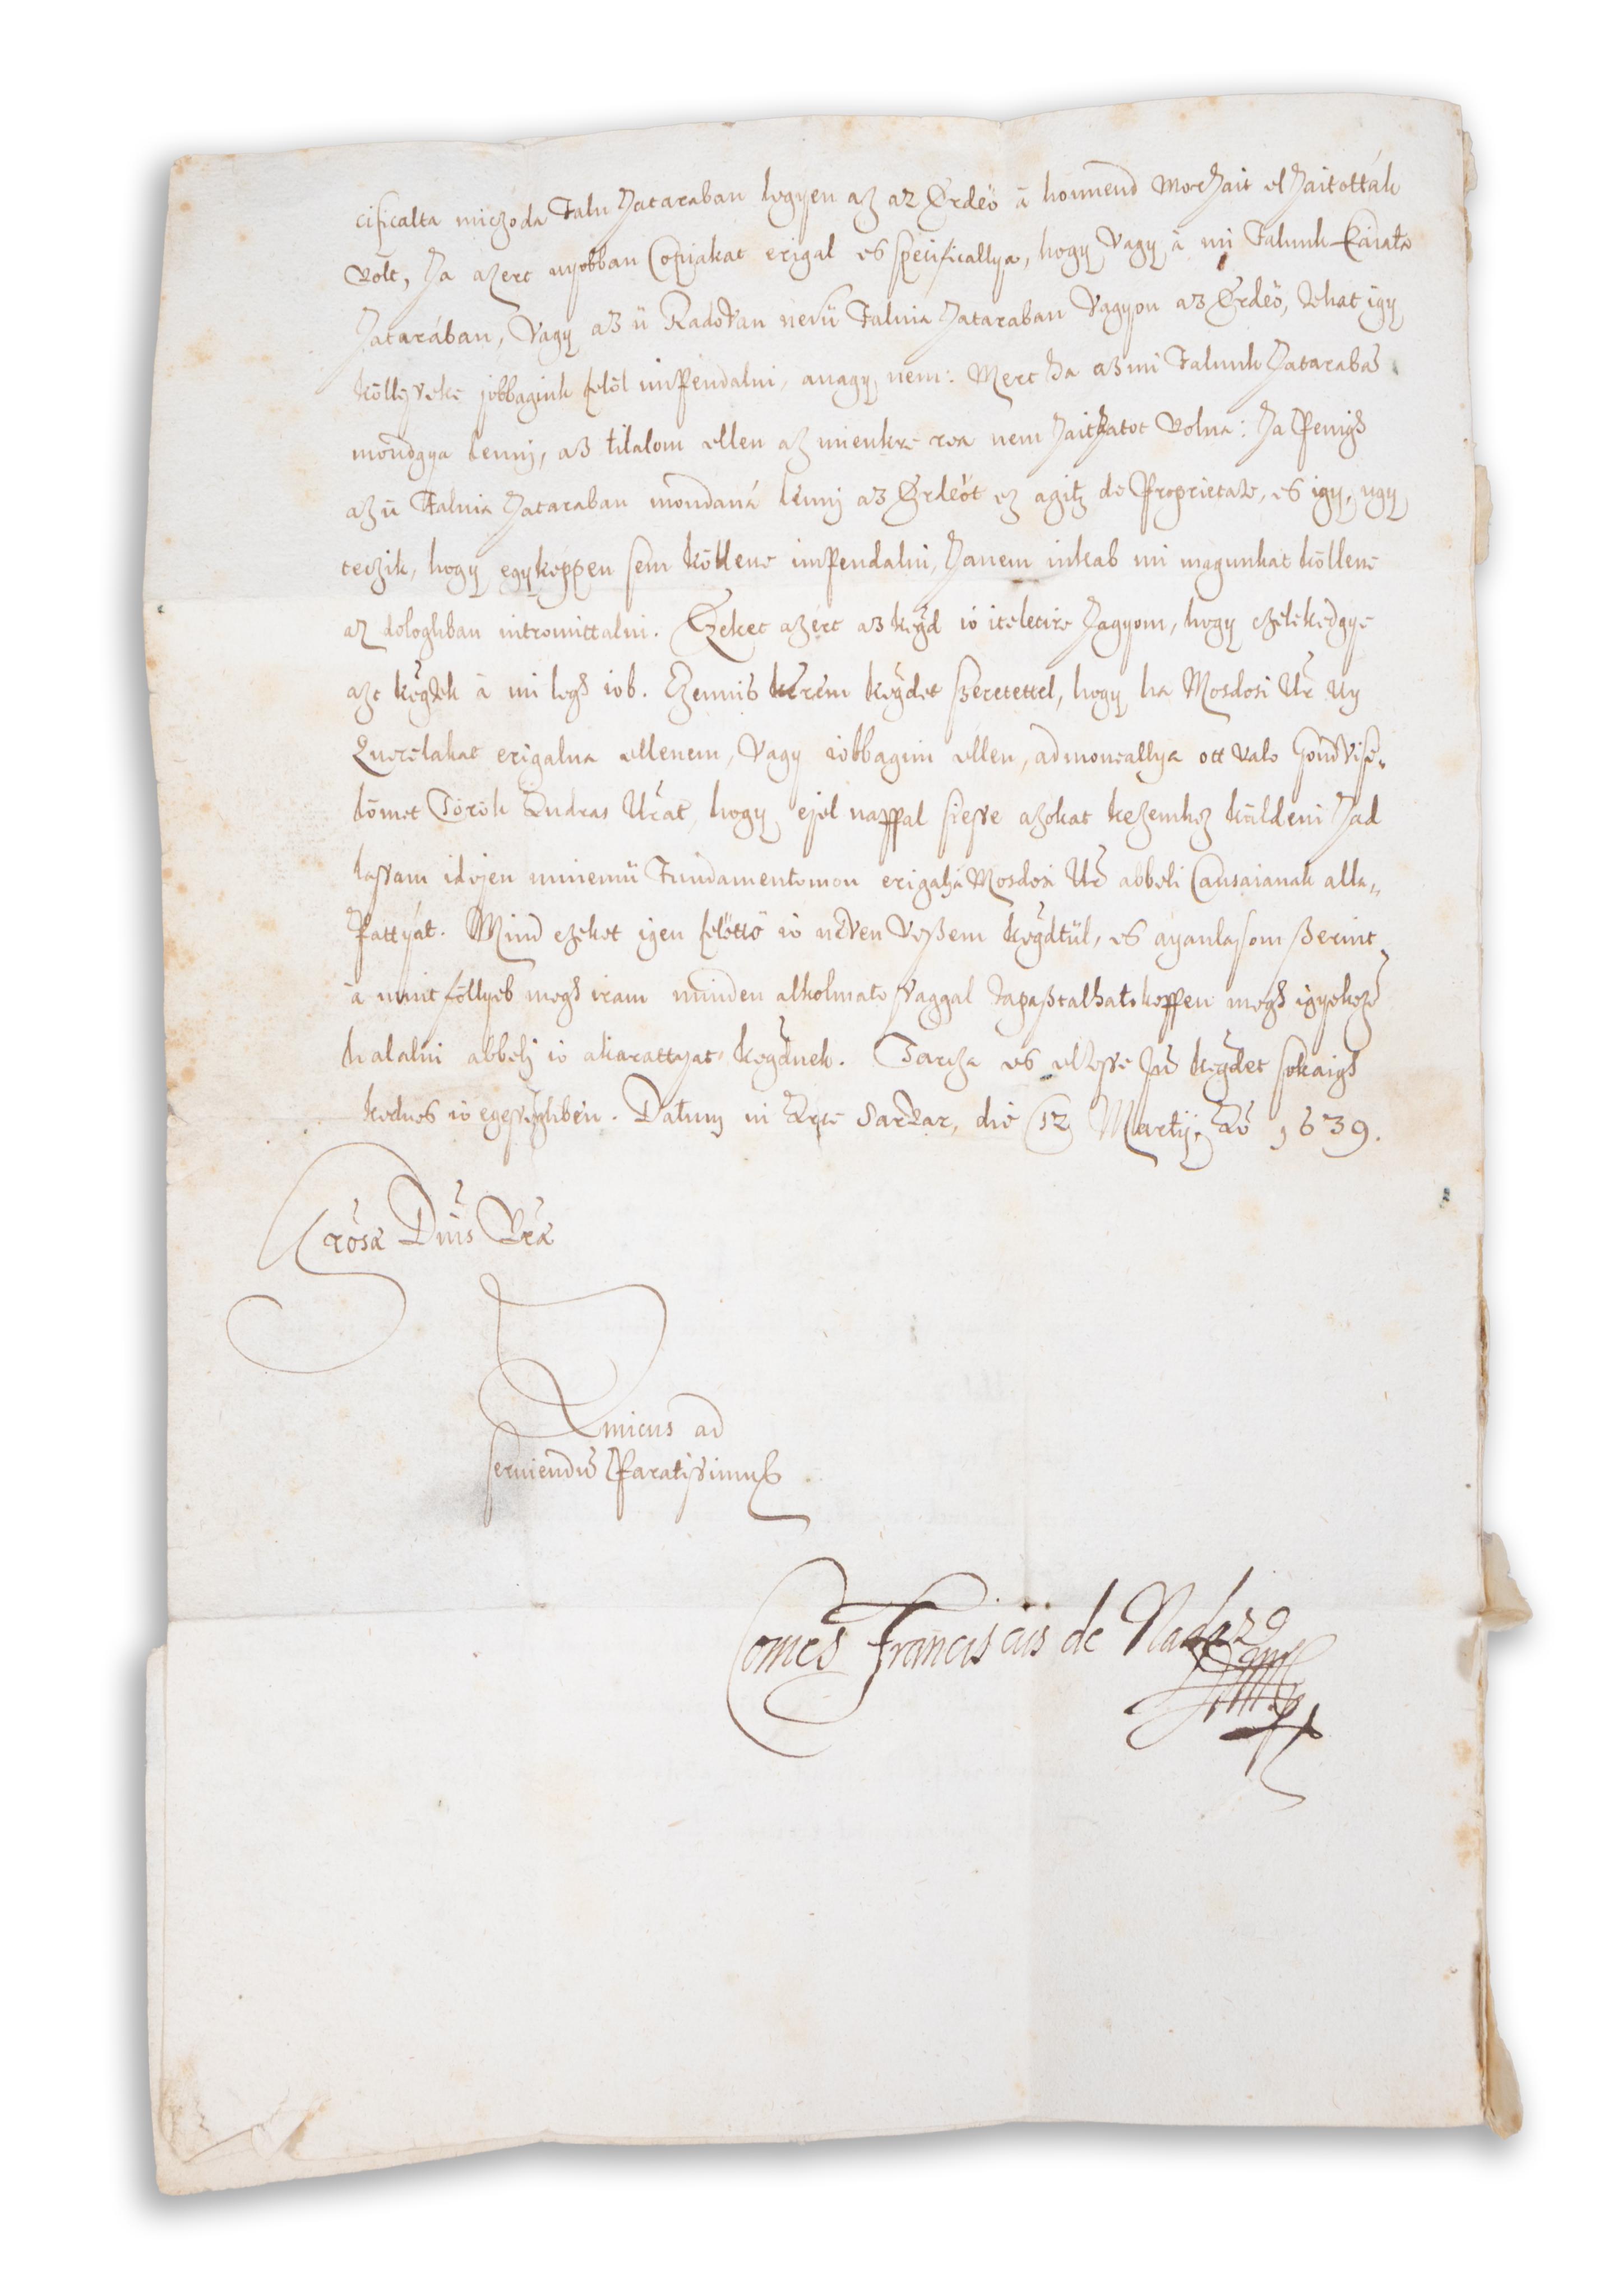 cificalta miczoda Falu hataraban legyen az az Erdeö à honnend Morhait el haitottak
volt, ha azert ujobban Copiakat erigal es specificallya, hogy vagy à mi Falunk
hatarában, vagy az ü Radovan nevü Faluia hataraban vagyon az Erdeö, tehat igy
jobbagink felöl impendalni, auagy nem: Mert ha az mi Falunk hatarabã
mondgya lennj, az tilalom ellen az mienkre rea nem haithatot volna: ha penigh
az ü Faluia hataraban mondaná lennj az Erdeöt ez agitz de Proprietate, es igy, ugy
teczik, hogy egykeppen sem köllene impendalni, hanem inkab mi magunkat köllene
az dologhban intromittalni. Ezeket azért az kegd io iteletire hagyom, hogy czelekedgye
azt kegtek à mi legh iob. Ezennis kérem kegdet szeretettel, hogy ha Mosdosi Ur uy
Querelakat erigalna ellenem, vagy iobbagim ellen, admoneallya ott valo Gondvise-
lömet Török Andras Urat, hogy ejel nappal sietve azokat kezemhez küldeni had
lassam idejen minemü Fundamentomon erigalja Mosdosi Ur abbeli Causaianak alla-
pattyát. Mind ezeket igen felötte io neven veszem kegdtül, es ayanlasom szerint
à mint föllyeb megh iram minden alkolmatossaggal tapasztalhatokeppen megh igyekezẽ
halalni abbelj io akarattyat kegdnek. Tarcza es eltesse Isñ kegdet sokaigh
kedues io egessighben. Datum in Arce Sarvar, die 12 Martij. Aõ 1639.
Grosæ Dnis Vrã
Amicus ad
seruiendũ Paratissimus
Comes Franciscus de Nadazd